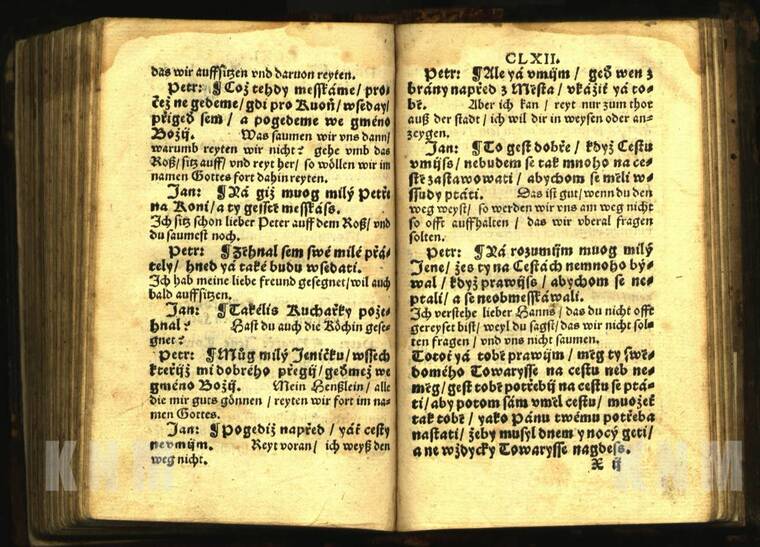 das wir auffsitzen vnd daruon reyten.
Petr: ¶Což tehdy messkáme/ pro⸗
čež ne gedeme/ gdi pro Kuoň/ wseday/
přigeď sem/ a pogedeme we gméno
Božij. Was saumen wir vns dann/
warumb reyten wir nicht? gehe vmb das
Roß/ sitz auff/ vnd reyt her/ so wöllen wir im
namen Gottes fort dahin reyten.
Jan: ¶Yá giž muog milý Petře
na Koni/ a ty gesstě messkáss.
Ich sitz schon lieber Peter auff dem Roß/ vnd
du saumest noch.
Petr: ¶Zžehnal sem swé milé přá⸗
tely/ hned yá také budu wsedati.
Ich hab meine liebe freund gesegnet/ wil auch
bald auffsitzen.
Jan: ¶Takélis Kuchařky pože⸗
hnal? Hast du auch die Köchin geseg⸗
gnet?
Petr: ¶Můg milý Jeníčku/ wssech
kteřijž mi dobrého přegij/ geďmež we
gméno Božij. Mein Henßlein/ alle
die mir guts gönnen/ reyten wir fort im na⸗
men Gottes.
Jan: ¶Pogediž napřed/ yáť cesty
nevmijm. Reyt voran/ ich weyß den
weg nicht.
CLXII.
Petr: ¶Ale yá vmijm/ geď wen z
brány napřed z Města/ vkážiť yá to⸗
bě. Aber ich kan/ reyt nur zum thor
auß der stadt/ ich wil dir in weysen oder an⸗
zeygen.
Jan: ¶To gest dobře/ když Cestu
vmijss/ nebudem se tak mnoho na ce⸗
stě zastawowati/ abychom se měli w⸗
ssudy ptáti. Das ist gut/ wenn du den
weg weyst/ so werden wir vns am weg nicht
so offt auffhalten/ das wir vberal fragen
solten.
Petr: ¶Yá rozumijm muog milý
Jene/ žes ty na Cestách nemnoho bý⸗
wal/ když prawijss/ abychom se ne⸗
ptali/ a se neobmesskáwali.
Ich verstehe lieber Hanns/ das du nicht offt
gereyset bist/ weyl du sagst/ das wir nicht sol⸗
ten fragen/ vnd vns nicht saumen.
Totoť yá tobě prawijm/ měg ty swě⸗
domého Towarysse na cestu neb ne⸗
měg/ gest tobě potřebij na cestu se ptá⸗
ti/ aby potom sám vměl cestu/ muožeť
tak tobě/ yako Pánu twému potřeba
nastati/ žeby musyl dnem y nocý geti/
a ne wždycky Towarysse nagdess.
X ij
KNM
KNM